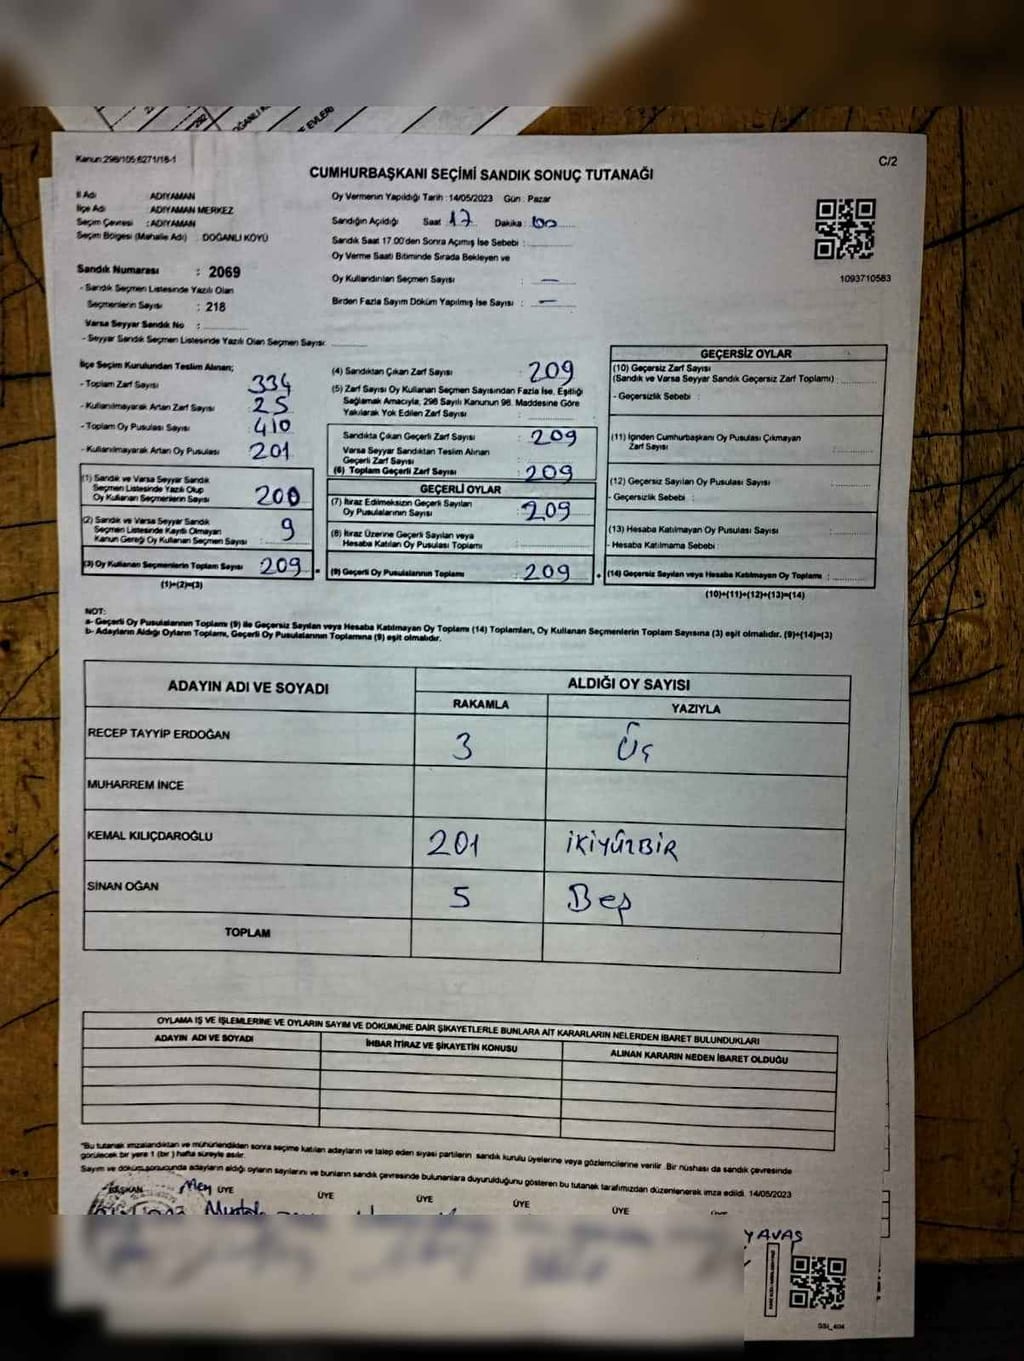 Kanun:298/105;6271/16-1
C/2
CUMHURBAŞKANI SEÇİMİ SANDIK SONUÇ TUTANAĞI
İl Adı ADIYAMAN
İlçe Adı ADIYAMAN MERKEZ
Seçim Çevresi : ADIYAMAN
Seçim Bölgesi (Mahalle Adı) : DOĞANLI KÖYÜ
Sandık Numarası : 2069
- Sandık Seçmen Listesinde Yazılı Olan
Seçmenlerin Sayısı : 218
Varsa Seyyar Sandık No :
- Seyyar Sandık Seçmen Listesinde Yazılı Olan Seçmen Sayısı:
Oy Vermenin Yapıldığı Tarih : 14/05/2023 Gün : Pazar
Sandığın Açıldığı Saat 17 Dakika : 00
Sandık Saat 17.00'den Sonra Açılmış İse Sebebi :
Oy Verme Saati Bitiminde Sırada Bekleyen ve
Oy Kullandırılan Seçmen Sayısı : —
Birden Fazla Sayım Döküm Yapılmış İse Sayısı : —
1093710583
İlçe Seçim Kurulundan Teslim Alınan;
- Toplam Zarf Sayısı 334
- Kullanılmayarak Artan Zarf Sayısı 25
- Toplam Oy Pusulası Sayısı 410
- Kullanılmayarak Artan Oy Pusulası 201
(1) Sandık ve Varsa Seyyar Sandık
Seçmen Listesinde Yazılı Olup
Oy Kullanan Seçmenlerin Sayısı 200
(2) Sandık ve Varsa Seyyar Sandık
Seçmen Listesinde Kayıtlı Olmayan
Kanun Gereği Oy Kullanan Seçmen Sayısı 9
(3) Oy Kullanan Seçmenlerin Toplam Sayısı 209
(1)+(2)=(3)
(4) Sandıktan Çıkan Zarf Sayısı 209
(5) Zarf Sayısı Oy Kullanan Seçmen Sayısından Fazla İse, Eşitliği
Sağlamak Amacıyla, 298 Sayılı Kanunun 98. Maddesine Göre
Yakılarak Yok Edilen Zarf Sayısı
Sandıkta Çıkan Geçerli Zarf Sayısı : 209
Varsa Seyyar Sandıktan Teslim Alınan
Geçerli Zarf Sayısı
(6) Toplam Geçerli Zarf Sayısı 209
GEÇERLİ OYLAR
(7) İtiraz Edilmeksizin Geçerli Sayılan
Oy Pusulalarının Sayısı 209
(8) İtiraz Üzerine Geçerli Sayılan veya
Hesaba Katılan Oy Pusulası Toplamı
(9) Geçerli Oy Pusulalarının Toplamı 209
GEÇERSİZ OYLAR
(10) Geçersiz Zarf Sayısı
(Sandık ve Varsa Seyyar Sandık Geçersiz Zarf Toplamı) :
- Geçersizlik Sebebi :
(11) İçinden Cumhurbaşkanı Oy Pusulası Çıkmayan
Zarf Sayısı
(12) Geçersiz Sayılan Oy Pusulası Sayısı
- Geçersizlik Sebebi :
(13) Hesaba Katılmayan Oy Pusulası Sayısı
- Hesaba Katılmama Sebebi :
(14) Geçersiz Sayılan veya Hesaba Katılmayan Oy Toplamı :
(10)+(11)+(12)+(13)=(14)
NOT:
a- Geçerli Oy Pusulalarının Toplamı (9) ile Geçersiz Sayılan veya Hesaba Katılmayan Oy Toplamı (14) Toplamları, Oy Kullanan Seçmenlerin Toplam Sayısına (3) eşit olmalıdır. (9)+(14)=(3)
b- Adayların Aldığı Oyların Toplamı, Geçerli Oy Pusulalarının Toplamına (9) eşit olmalıdır.
ADAYIN ADI VE SOYADI ALDIĞI OY SAYISI
RAKAMLA YAZIYLA
RECEP TAYYİP ERDOĞAN 3 Üç
MUHARREM İNCE
KEMAL KILIÇDAROĞLU 201 İKİYÜZBİR
SİNAN OĞAN 5 Beş
TOPLAM
OYLAMA İŞ VE İŞLEMLERİNE VE OYLARIN SAYIM VE DÖKÜMÜNE DAİR ŞİKAYETLERLE BUNLARA AİT KARARLARIN NELERDEN İBARET BULUNDUKLARI
ADAYIN ADI VE SOYADI İHBAR İTİRAZ VE ŞİKAYETİN KONUSU ALINAN KARARIN NEDEN İBARET OLDUĞU
*Bu tutanak imzalandıktan ve mühürlendikten sonra seçime katılan adayların ve talep eden siyasi partilerin sandık kurulu üyelerine veya gözlemcilerine verilir. Bir nüshası da sandık çevresinde
görülecek bir yere 1 (bir) hafta süreyle asılır.
Sayım ve döküm sonucunda adayların aldığı oyların sayılarını ve bunların sandık çevresinde bulunanlara duyurulduğunu gösteren bu tutanak tarafımızdan düzenlenerek imza edildi. 14/05/2023
BAŞKAN ÜYE ÜYE ÜYE ÜYE ÜYE
YAVAŞ